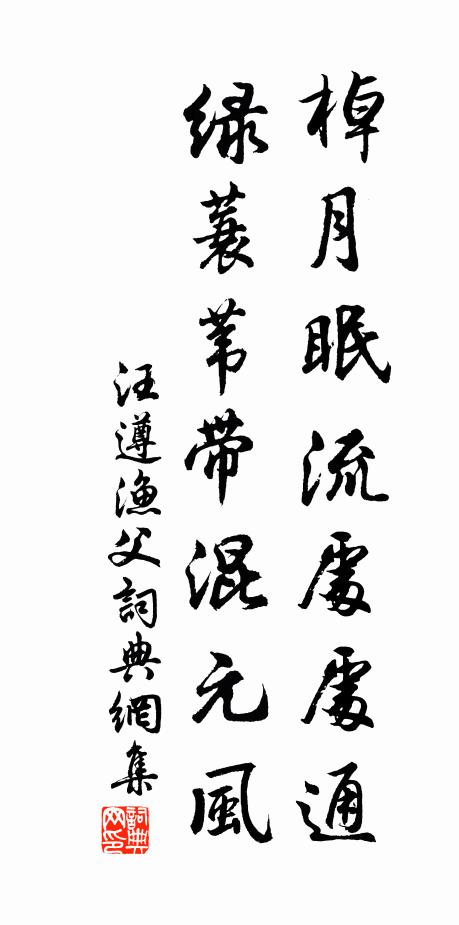 棹月眠流處處通
绿蓑苇带混元風
汪遵漁父詞典網集
詞典网印